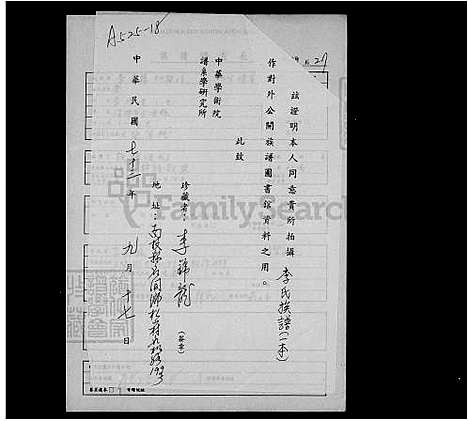 A525-18
茲證明本人同意貴所拍攝 李氏族譜(一本)
作對外公開族譜圖書館資料之用。
此致
中華學術院
譜系學研究所
珍藏者：李錦龍 (簽章)
地址：南投縣名間鄉松
中華民國 七十二 年 九 月 十七 日
FamilySearch